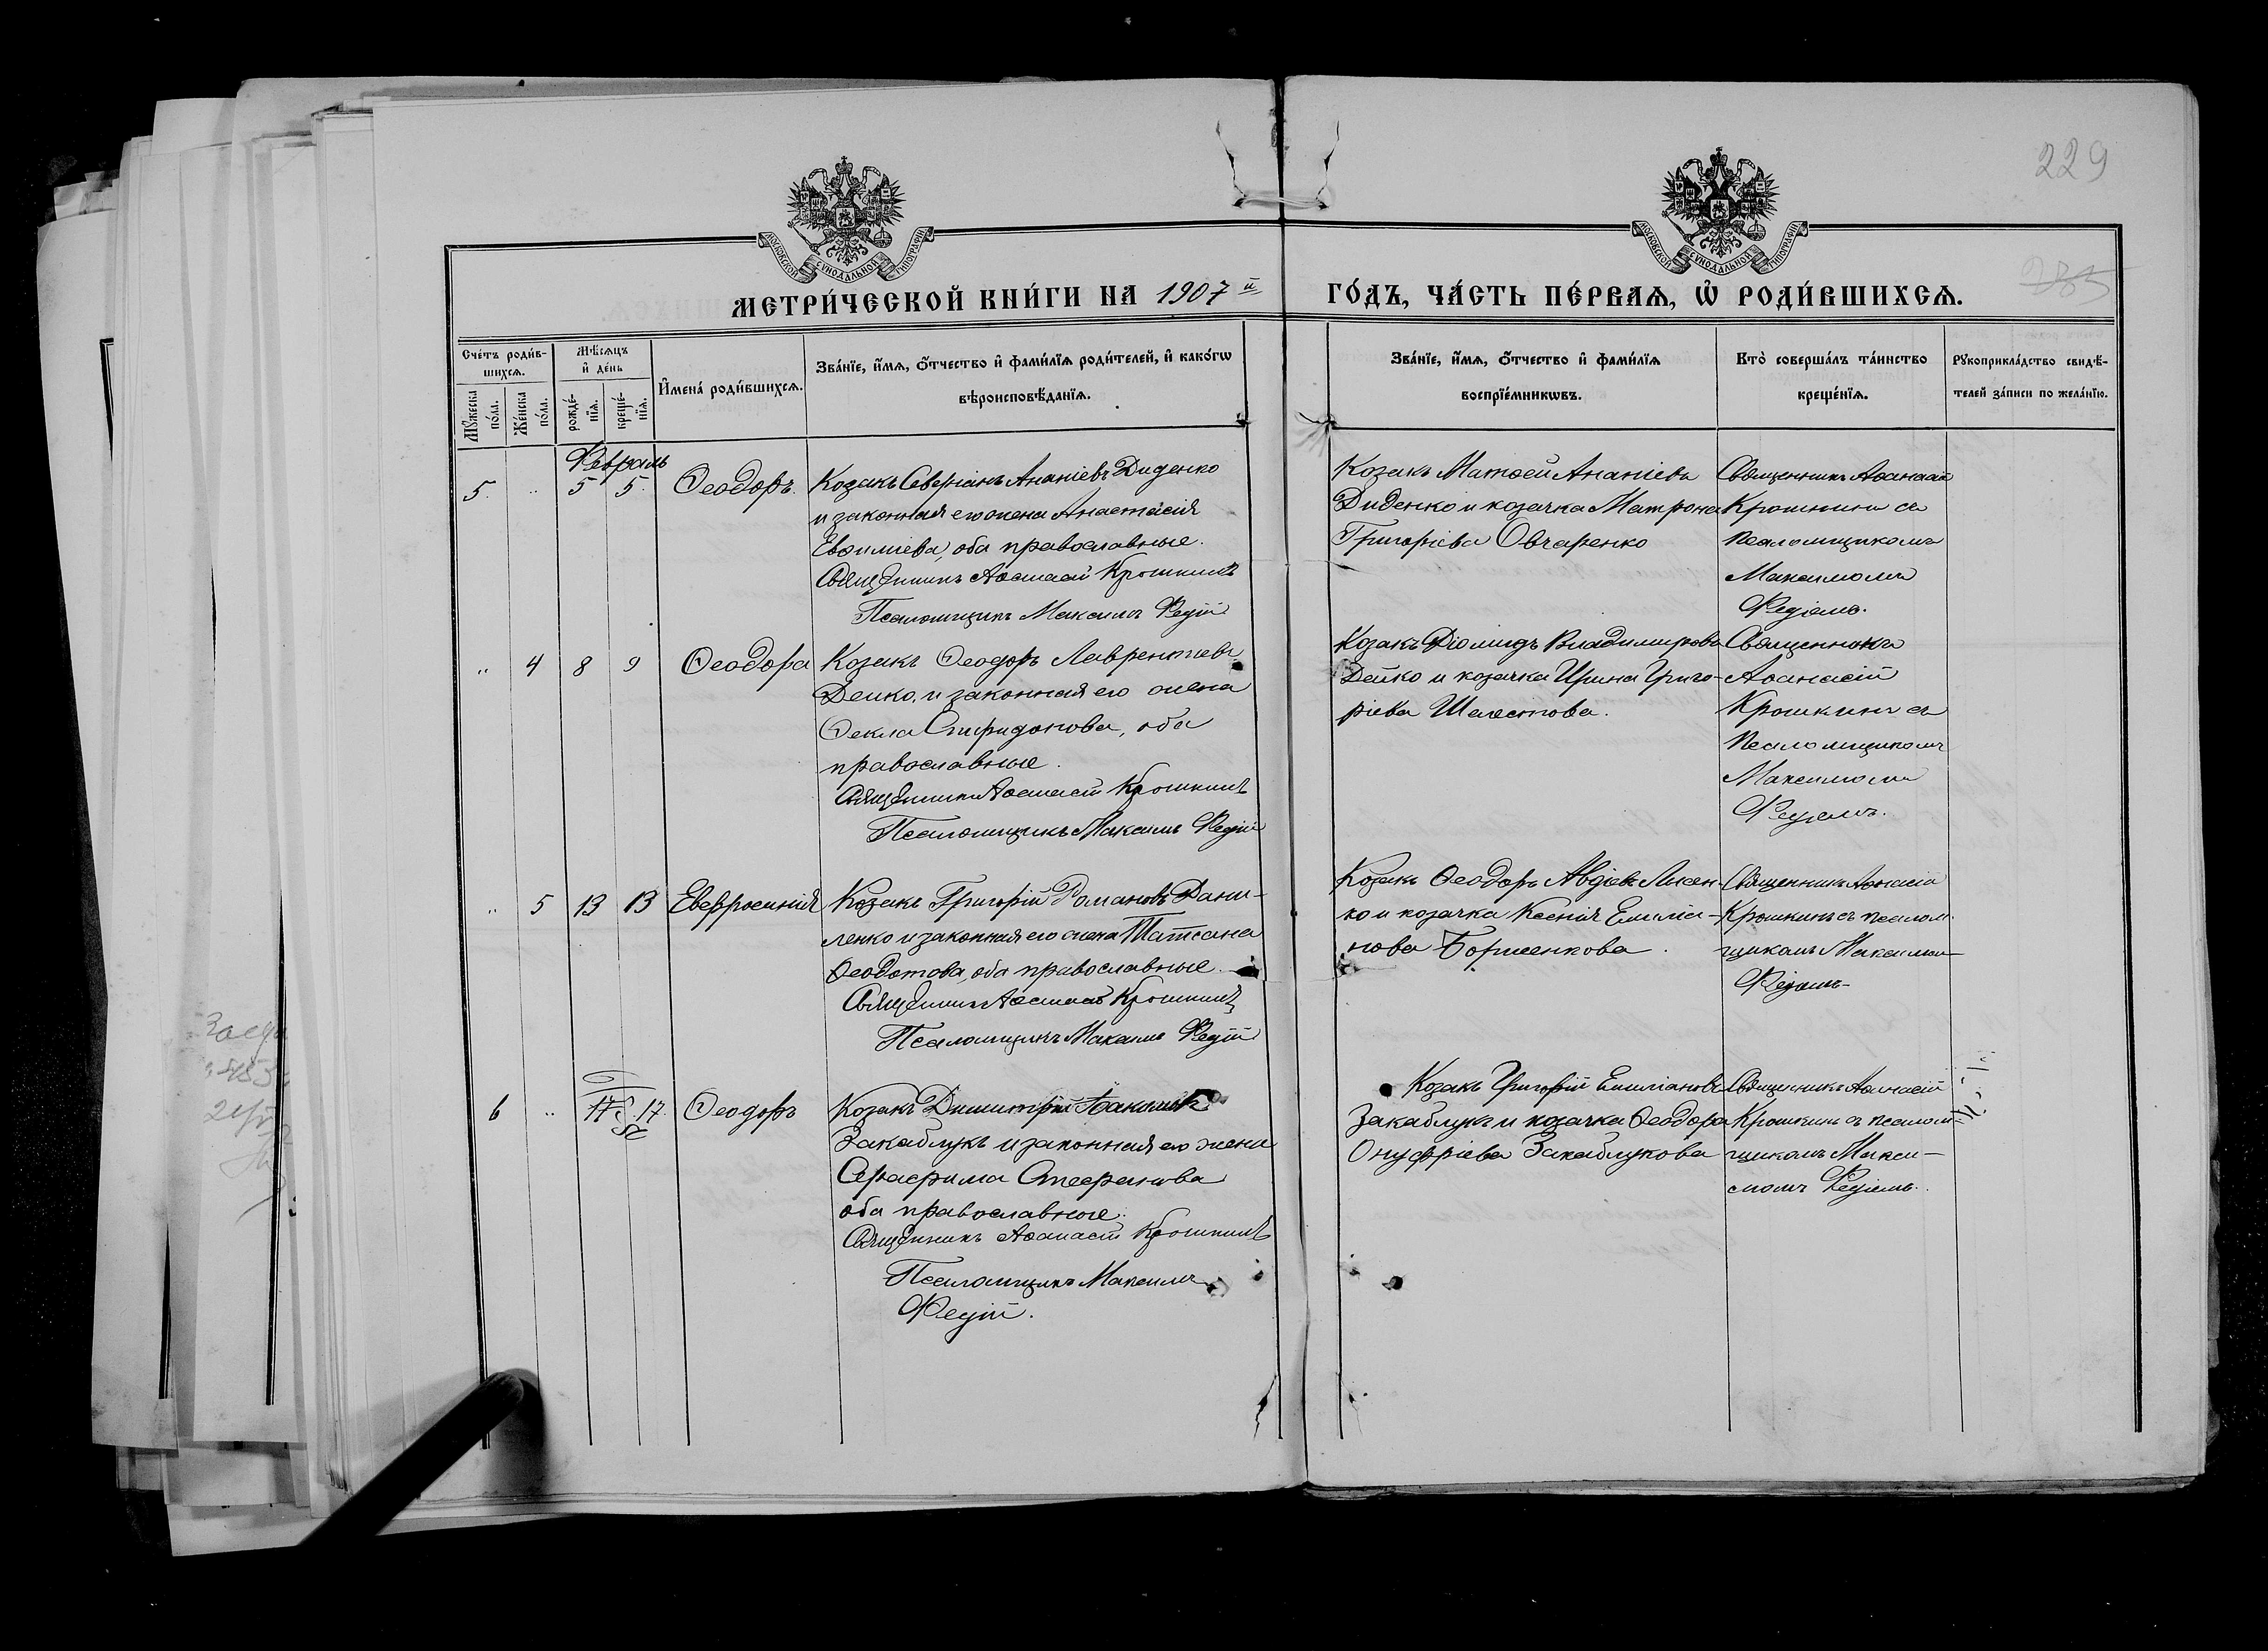 229
285
МОСКОВСКОЙ СѴНОДАЛЬНОЙ ТИПОГРАФІИ
МОСКОВСКОЙ СѴНОДАЛЬНОЙ ТИПОГРАФІИ
МЕТРИ́ЧЕСКОЙ КНИ́ГИ НА 1907й ГО́ДЪ, ЧА́СТЬ ПЕ́РВАѦ, Ѡ҆ РОДИ́ВШИХСѦ.
Сче́тъ роди́в-
шихсѧ.
Мꙋ́жеска
по́ла.
Же́нска
по́ла.
Мѣ́сѧцъ
и҆ де́нь
рожде́-
нїѧ.
креще́-
нїѧ.
И҆мена̀ роди́вшихсѧ.
Зва́нїе, и҆́мѧ, ѻ҆́тчество и҆ фами́лїѧ роди́телей, и҆ како́гѡ
вѣроисповѣ́данїѧ.
Зва́нїе, и҆́мѧ, ѻ҆́тчество и҆ фами́лїѧ
воспрїе́мникѡвъ.
Кто̀ соверша́лъ та́инство
креще́нїѧ.
Рꙋкоприкла́дство свидѣ́-
телей за́писи по жела́нїю.
Февраль
5. „ 5 5. Ѳеодоръ.
Козакъ Северіанъ Ананіевъ Диденко
и законная его жена Анастасія
Евѳиміева, оба православные.
Священникъ Аѳанасій Крошкинъ
Псаломщикъ Максимъ Редій
Козакъ Матѳей Ананіевъ
Диденко и козачка Матрона
Григоріева Овчаренко
Священникъ Аѳанасій
Крошкинъ съ
псаломщикомъ
Максимомъ
Редіемъ.
„ 4 8 9 Ѳеодора
Козакъ Ѳеодоръ Лаврентіевъ
Дейко, и законная его жена
Ѳекла Спиридонова, оба
православные.
Священникъ Аѳанасій Крошкинъ
Псаломщикъ Максимъ Редій
Козакъ Діомидъ Владимировъ
Дейко и козачка Ирина Григо-
ріева Шелестова.
Священникъ
Аѳанасій
Крошкинъ съ
псаломщикомъ
Максимомъ
Редіемъ.
„ 5 13 13 Евфросинія
Козакъ Григорій Романовъ Дани-
ленко и законная его жена Татіана
Ѳеодотова, оба православные.
Священникъ Аѳанасій Крошкинъ
Псаломщикъ Максимъ Редій
Козакъ Ѳеодоръ Авдіевъ Лисен-
ко и козачка Ксенія Емилiа-
нова Борисенкова.
Священникъ Аѳанасій
Крошкинъ съ псалом-
щикомъ Максимомъ
Редіемъ
6 „ 17 17. Ѳеодоръ
Козакъ Димитрій
Закаблукъ и законная его жена
Серафима Стефанова
оба православные.
Священникъ Аѳанасій Крошкинъ
Псаломщикъ Максимъ
Редій.
Козакъ Григорій Емиліановъ
Закаблукъ и козачка Ѳеодора
Онуфріева Закаблукова
Священникъ Аѳанасій
Крошкинъ съ псалом-
щикомъ Макси-
момъ Редіемъ.